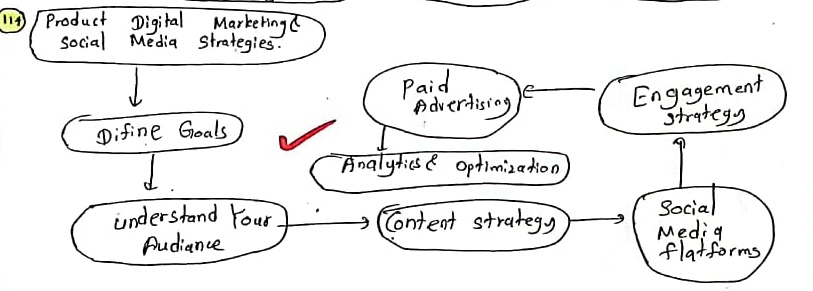 114
Product Digital Marketing &
Social Media Strategies.
Difine Goals
Understand Your
Audiance
Content strategy
Social
Media
flatforms
Engagement
strategy
Paid
Advertising
Analytics & optimization